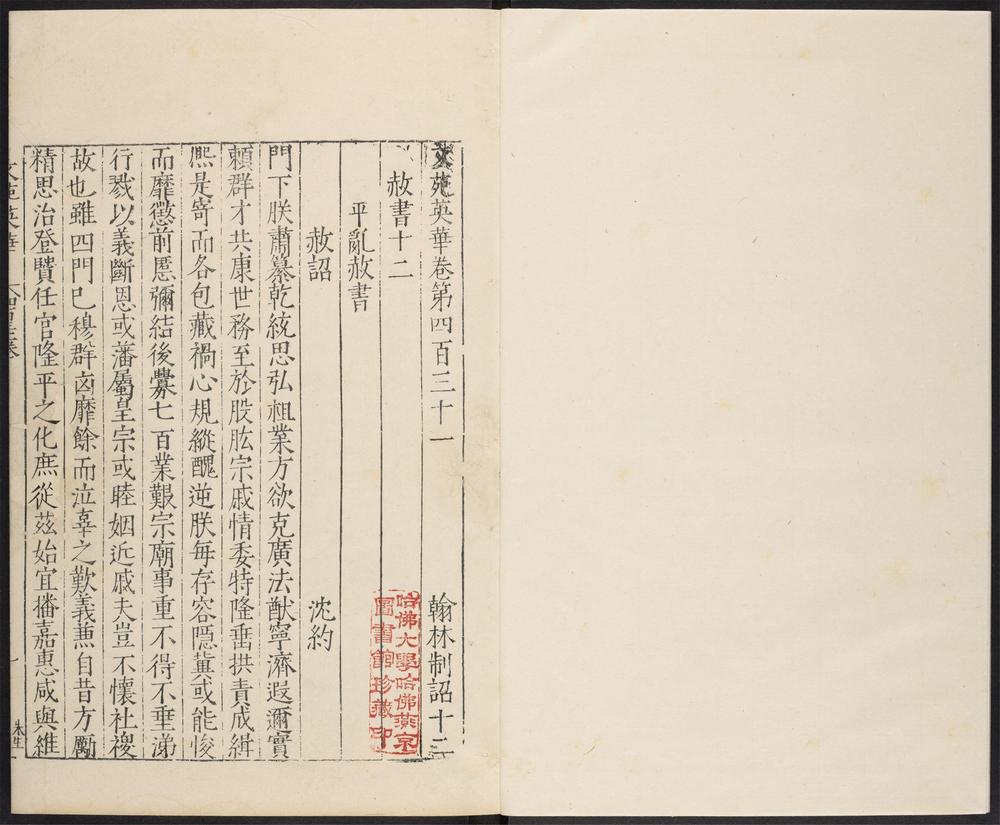 文苑英華卷第四百三十一 翰林制詔十二
赦書十二
平亂赦書
赦詔 沈約
門下朕肅纂乾統思弘祖業方欲克廣法猷寧濟遐邇實
頼群才共康世務至於股肱宗戚情委特隆垂拱責成緝
熈是寄而各包藏禍心規縱醜逆朕每存容隱冀或能悛
而靡懲前慝彌結後釁七百業艱宗廟事重不得不垂涕
行戮以義斷恩或藩屬皇宗或睦姻近戚夫豈不懷社禝
故也雖四門已穆群凶靡餘而泣辜之歎義兼自昔方勵
精思治登賢任官隆平之化庶從茲始宜播嘉惠咸與維
文苑英華
朱生
哈佛大學哈佛燕京
圖書館珍藏印